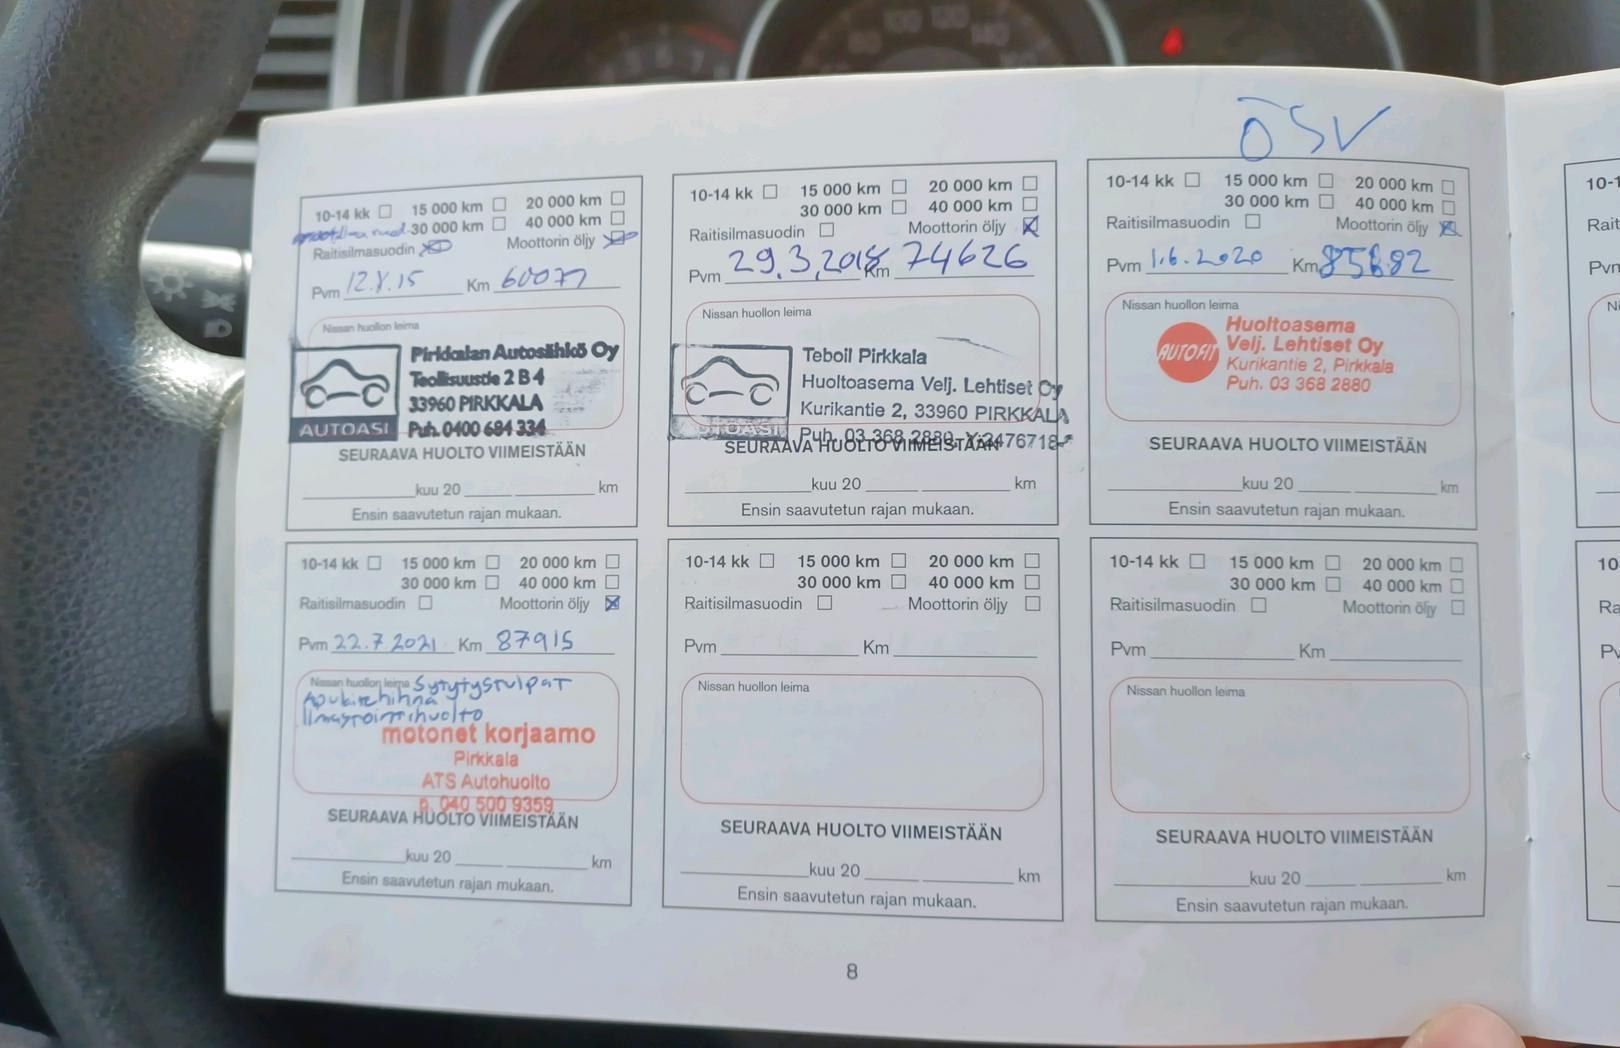 ÖSV
10-14 kk 15 000 km 20 000 km
30 000 km 40 000 km
Raitisilmasuodin Moottorin öljy
Pvm 12.X.15 Km 60077
Nissan huollon leima
Pirkkalan Autosähkö Oy
Teollisuustie 2 B 4
33960 PIRKKALA
AUTOASI Puh. 0400 684 334
SEURAAVA HUOLTO VIIMEISTÄÄN
kuu 20 km
Ensin saavutetun rajan mukaan.
10-14 kk 15 000 km 20 000 km
30 000 km 40 000 km
Raitisilmasuodin Moottorin öljy
Pvm 29.3.2018 Km 74626
Nissan huollon leima
Teboil Pirkkala
Huoltoasema Velj. Lehtiset Oy
Kurikantie 2, 33960 PIRKKALA
AUTOASI Puh. 03 368 2880
SEURAAVA HUOLTO VIIMEISTÄÄN
kuu 20 km
Ensin saavutetun rajan mukaan.
10-14 kk 15 000 km 20 000 km
30 000 km 40 000 km
Raitisilmasuodin Moottorin öljy
Pvm 1.6.2020 Km
Nissan huollon leima
AUTOFIT
Huoltoasema
Velj. Lehtiset Oy
Kurikantie 2, Pirkkala
Puh. 03 368 2880
SEURAAVA HUOLTO VIIMEISTÄÄN
kuu 20 km
Ensin saavutetun rajan mukaan.
10-14 kk 15 000 km 20 000 km
30 000 km 40 000 km
Raitisilmasuodin Moottorin öljy
Pvm 22.7.2021 Km 87915
Nissan huollon leima Sytytystulpat
Apulaitehihna
Ilmastointihuolto
motonet korjaamo
Pirkkala
ATS Autohuolto
p. 040 500 9359
SEURAAVA HUOLTO VIIMEISTÄÄN
kuu 20 km
Ensin saavutetun rajan mukaan.
10-14 kk 15 000 km 20 000 km
30 000 km 40 000 km
Raitisilmasuodin Moottorin öljy
Pvm Km
Nissan huollon leima
SEURAAVA HUOLTO VIIMEISTÄÄN
kuu 20 km
Ensin saavutetun rajan mukaan.
10-14 kk 15 000 km 20 000 km
30 000 km 40 000 km
Raitisilmasuodin Moottorin öljy
Pvm Km
Nissan huollon leima
SEURAAVA HUOLTO VIIMEISTÄÄN
kuu 20 km
Ensin saavutetun rajan mukaan.
8